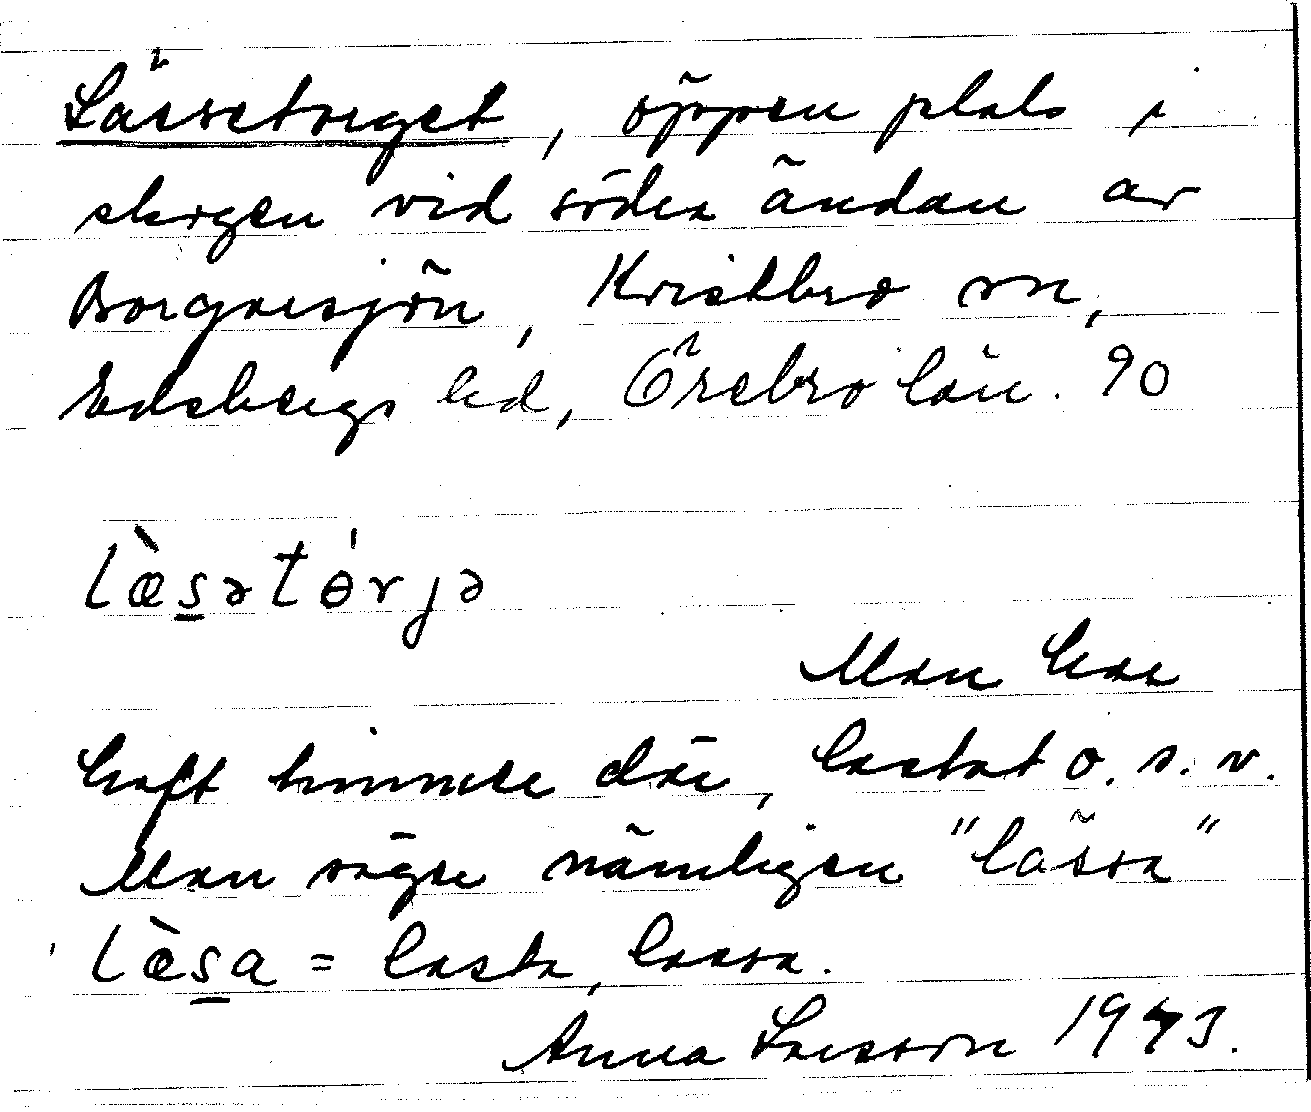 Lässetorget, öppen plats i
skogen vid södra ändan av
Borgarsjön, Kvistbro sn,
Edsbergs hd, Örebro län. 90
læ̀s̱ətɵ́rjə
Man har
haft timmer där, lastat o. s. v.
Man säger nämligen "lässa"
læ̀s̱a = lasta, lassa.
Anna Larsson 1943.